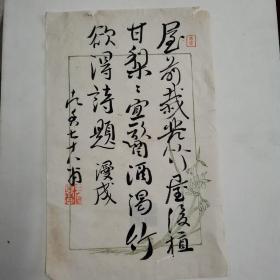 屋前栽卷竹屋後植
甘梨梨宜醫酒渴竹
欲得詩題 漫成
七十八翁